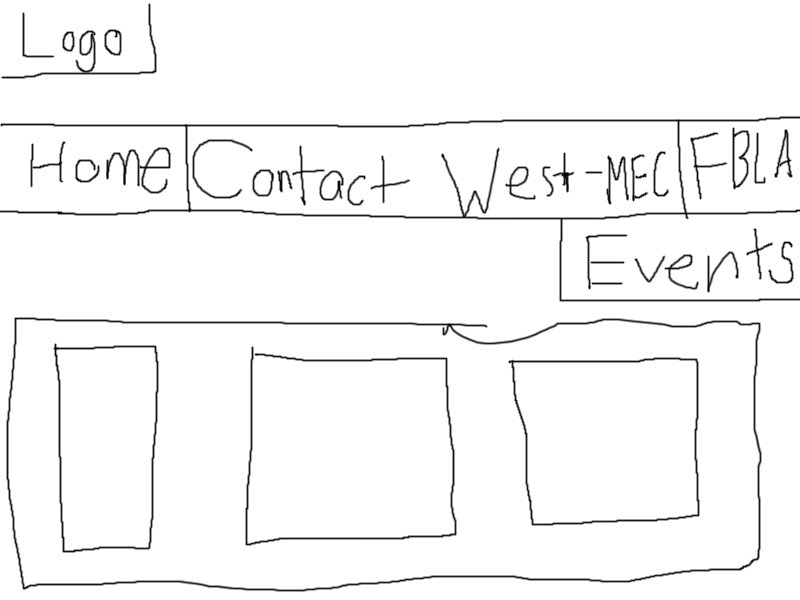 Logo
Home Contact West-MEC FBLA
Events